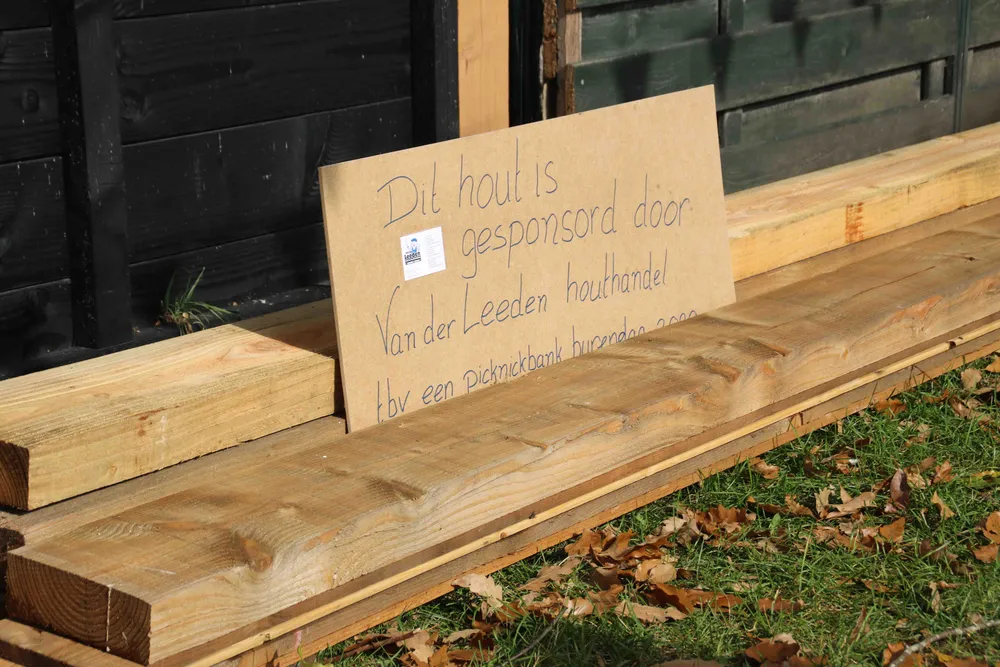 Dit hout is
gesponsord door
Van der Leeden houthandel
tbv een picknickbank burendag